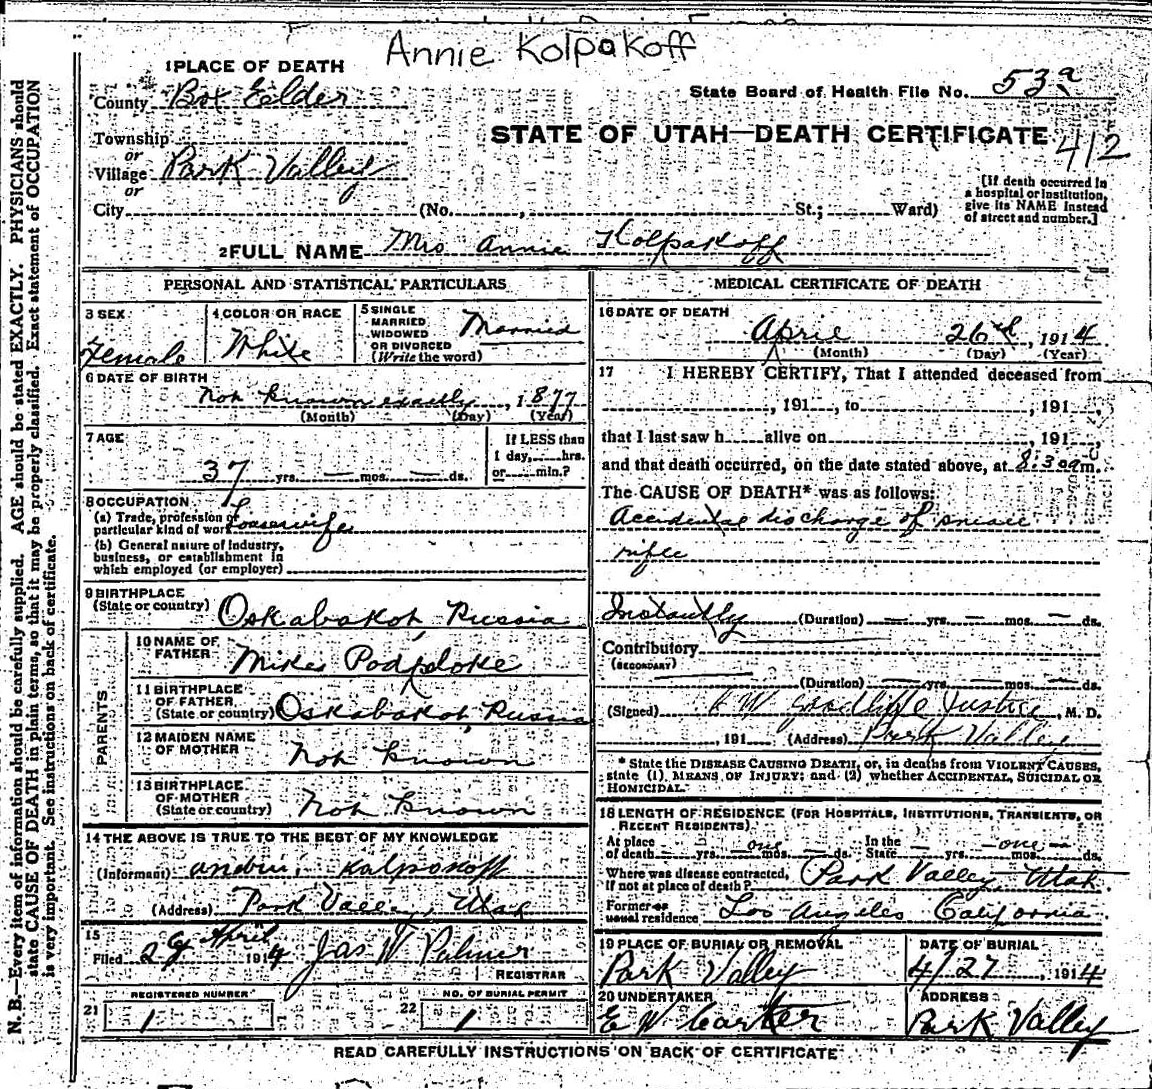 Annie Kolpakoff
1 PLACE OF DEATH
County Box Elder
State Board of Health File No. 53a
Township
STATE OF UTAH—DEATH CERTIFICATE 412
or
Village Park Valley
or
[If death occurred in a hospital or institution, give its NAME instead of street and number.]
City (No. , St.; Ward)
2 FULL NAME Mrs Annie Kolpakoff
PERSONAL AND STATISTICAL PARTICULARS
3 SEX
Female
4 COLOR OR RACE
White
5 SINGLE
MARRIED
WIDOWED
OR DIVORCED
(Write the word)
Married
6 DATE OF BIRTH
Not known exactly, 1877
(Month) (Day) (Year)
7 AGE
37 yrs. — mos. — ds.
If LESS than
1 day, hrs.
or min.?
8 OCCUPATION
(a) Trade, profession or
particular kind of work Housewife
(b) General nature of industry,
business, or establishment in
which employed (or employer)
9 BIRTHPLACE
(State or country) Oskabakot, Russia
PARENTS
10 NAME OF
FATHER Mike Podploke
11 BIRTHPLACE
OF FATHER
(State or country) Oskabakot, Russia
12 MAIDEN NAME
OF MOTHER Not known
13 BIRTHPLACE
OF MOTHER
(State or country) Not known
14 THE ABOVE IS TRUE TO THE BEST OF MY KNOWLEDGE
(Informant) Kolponoff
(Address) Park Valley, Utah
15
Filed 29 April 1914 Jas W Palmer
REGISTRAR
REGISTERED NUMBER
21 1
NO. OF BURIAL PERMIT
22 1
MEDICAL CERTIFICATE OF DEATH
16 DATE OF DEATH
April 26th, 1914
(Month) (Day) (Year)
17 I HEREBY CERTIFY, That I attended deceased from
, 191 , to , 191 ,
that I last saw h alive on , 191 ,
and that death occurred, on the date stated above, at 8:30 a m.
The CAUSE OF DEATH* was as follows:
Accidental discharge of
rifle
Instantly (Duration) — yrs. — mos. — ds.
Contributory
(SECONDARY)
(Duration) yrs. mos. ds.
(Signed) Justice, M. D.
, 191 (Address) Park Valley
* State the DISEASE CAUSING DEATH, or, in deaths from VIOLENT CAUSES,
state (1) MEANS OF INJURY; and (2) whether ACCIDENTAL, SUICIDAL OR
HOMICIDAL.
18 LENGTH OF RESIDENCE (FOR HOSPITALS, INSTITUTIONS, TRANSIENTS, OR
RECENT RESIDENTS)
At place
of death — yrs. one mos. — ds. In the
State — yrs. one mos. — ds.
Where was disease contracted,
if not at place of death? Park Valley, Utah
Former or
usual residence Los Angeles California
19 PLACE OF BURIAL OR REMOVAL
Park Valley
DATE OF BURIAL
4/27, 1914
20 UNDERTAKER
E W Carter
ADDRESS
Park Valley
READ CAREFULLY INSTRUCTIONS ON BACK OF CERTIFICATE
N. B.—Every item of information should be carefully supplied. AGE should be stated EXACTLY. PHYSICIANS should
state CAUSE OF DEATH in plain terms, so that it may be properly classified. Exact statement of OCCUPATION
is very important. See instructions on back of certificate.